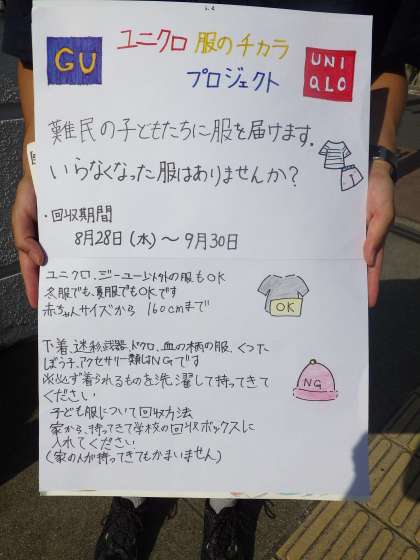 GU
ユニクロ 服のチカラ
プロジェクト
UNI
QLO
難民の子どもたちに服を届けます。
いらなくなった服はありませんか?
・回収期間
8月28日(水)~9月30日
ユニクロ、ジーユー以外の服もOK
冬服でも、夏服でもOKです
赤ちゃんサイズから 160cmまで
OK
下着、迷彩、武器、ドクロ、血の柄の服、くつ下
ぼう子、アクセサリー類はNGです
NG
※必ず着られるものを洗濯して持ってきて
ください
子ども服について回収方法
家から、持ってきて学校の回収ボックスに
入れてください
(家の人が持ってきてもかまいません)